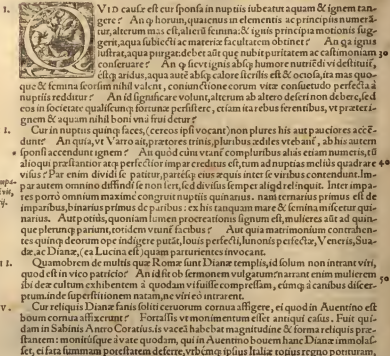 I. QVID causæ est cur sponsa in nuptiis iubeatur aquam & ignem tan-
gere? An q̃ horum, quæ unus in elementis ac principiis numera-
tur, alterum mas est, alterū femina: & ignis principia motionis sug-
gerit, aqua subiecti ac materiæ facultatem obtinet? An q̃a ignis
lustrat, aqua purgat: debet aūt quę nubit puritatem ac castimoniam 30
conseruare? An q̃ sicut ignis absq; humore nutriēdi vi destituit,
estq; aridus, aqua autē absq; calore sterilis est & ociosa, ita mas quo-
que & femina seorsim nihil valent, coniunctione eorum vitæ consuetudo perfecta à
nuptiis redditur? An id significare volunt, alterum ab altero deseri non debere, sed
eos in societate qualiscunq; fortunæ persistere, etiam ita rebus ferentibus, vt præter i-
gnem & aquam nihil boni vnà frui detur?
I. Cur in nuptiis quinq; faces, (cereos ipsi vocant) non plures his aut pauciores accē-
dunt? An quia, vt Varro ait, prætores trinis, pluribus ædiles vtebant̃, ab his autem
sponsi accendunt ignem? An quòd cùm vtant̃ compluribus aliàs etiam numeris, tū
alioqui præstantior atq; perfectior impar creditus est, tum ad nuptias meliùs quadrare 40
visus? Par enim diuidi se patitur, partésq; eius æquis inter se viribus contendunt. Im-
par autem omnino diffindi se non sert, sed diuisus semper aliqd relinquit. Inter impa-
res porrò omnium maximè congruit nuptiis quinarius. nam ternarius primus est de
imparibus, binarius primus de paribus: ex his tanquam mare & femina conficitur qui-
narius. Aut potiùs, quoniam lumen procreationis signum est, mulieres aūt ad quin-
que plerunq; pariunt, totidem vtunt̃ facibus? An quia matrimonium contrahen-
tes quinq; deorum ope indigere putāt, Iouis perfecti, Iunonis perfectæ, Veneris, Sua-
dæ ac Dianæ, (ea Lucina est) quam parturientes inuocant.
II. Quamobrem de multis quæ Romæ sunt Dianæ templis, id solum non intrant viri,
quod est in vico patricio? An id fit ob sermonem vulgatum? narrant enim mulierem
sibi deæ cultum exhibentem à quodam vi fuisse compressam, eumq; à canibus discer- 50
ptum. inde superstitionem natam, ne viri eò intrarent.
V. Cur reliquis Dianæ fanis soliti ceruorum cornua affigere, ei quod in Auentino est
boum cornua affixerunt? Fortassis vt monimentum esset antiqui casus. Fuit qui-
dam in Sabinis Antro Coratius. is vaccā habebat magnitudine & forma reliquis præ-
stantem: monitúsque à vate quodam, qui in Auentino bouem hanc Dianæ immolas-
set, ei fata summam potestatem deferre, vrbémq; ipsius Italiæ totius regno potituram.